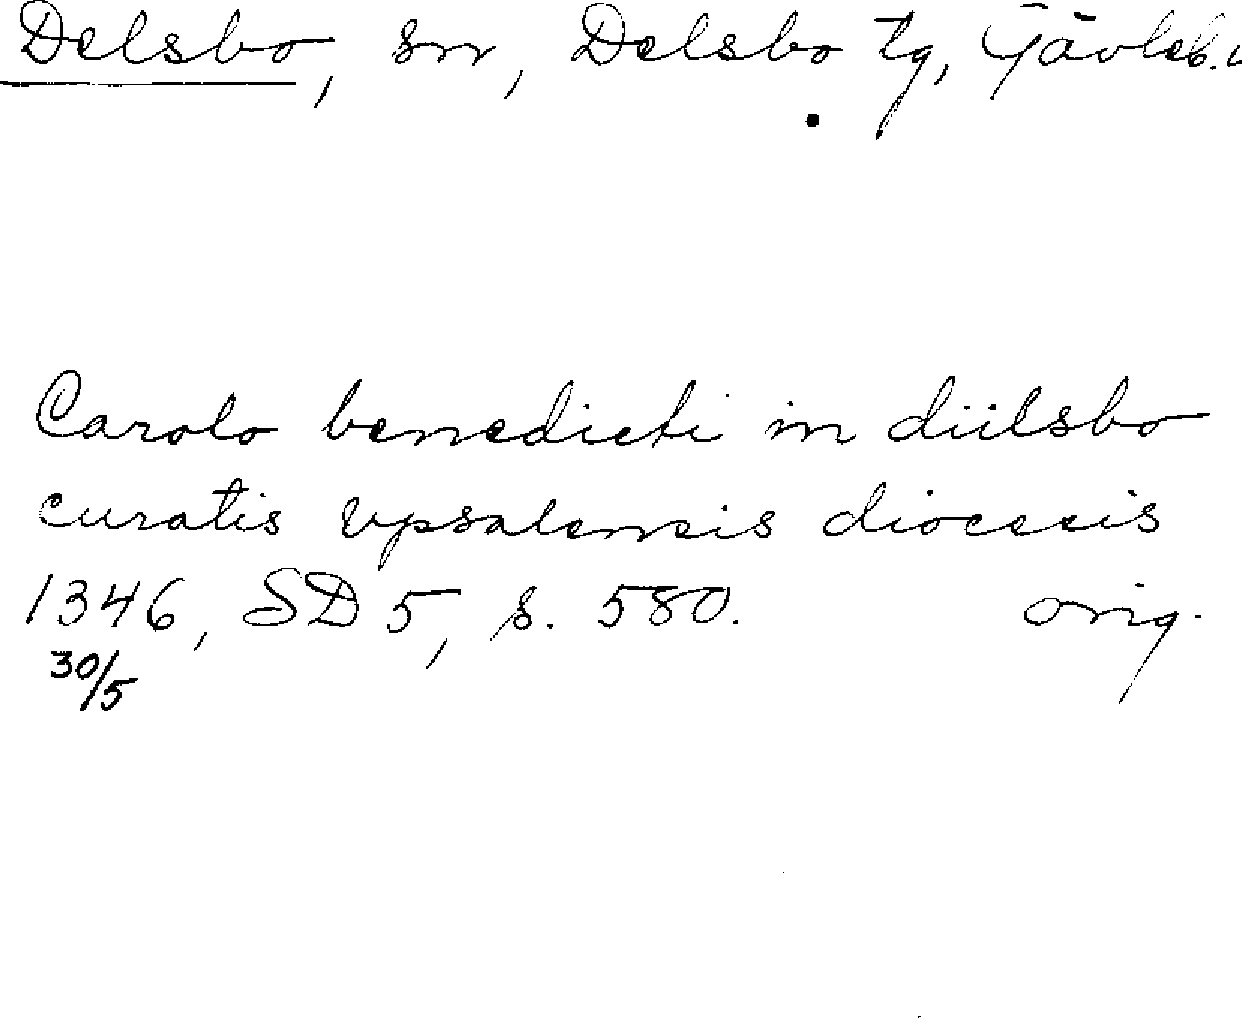 Delsbo, sn, Delsbo tg, Gävleb.
Carolo benedicti in diilsbo
curatis vpsalensis diocesis
1346, SD 5, s. 580. orig.
30/5